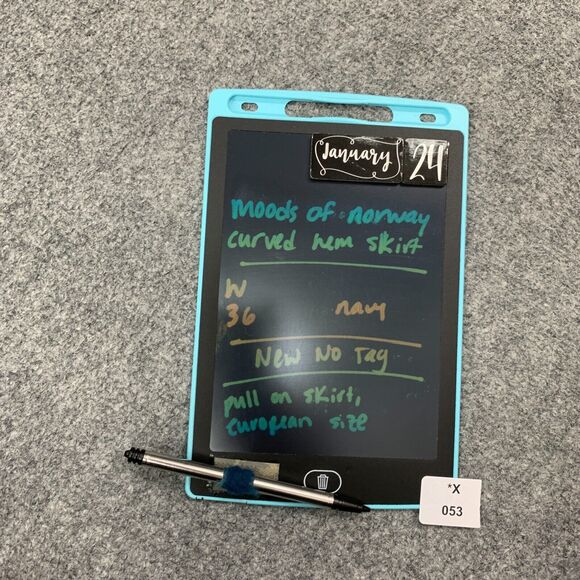 January 24
moods of norway
curved hem skirt
W
36 navy
New No Tag
pull on skirt,
european size
*X
053